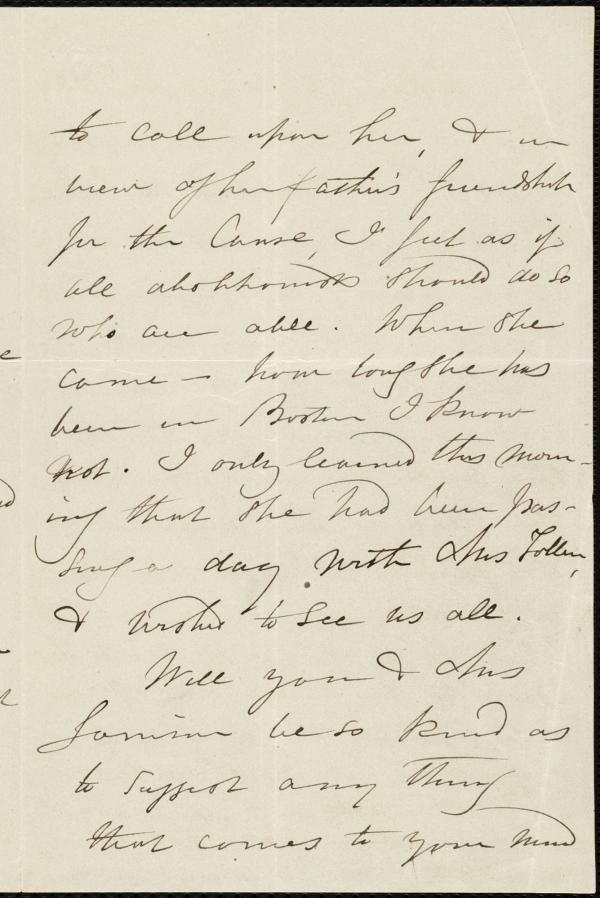 to call upon her, & in
view of her father's friendship
for the Cause, I feel as if
all abolitionists should do so
who are able. When she
came — how long she has
been in Boston I know
not. I only learned this morn-
ing that she had been pas-
sing a day with Mrs Follen,
& wishes to see us all.
Will you & Mrs
Garrison be so kind as
to suggest any thing
that comes to your mind